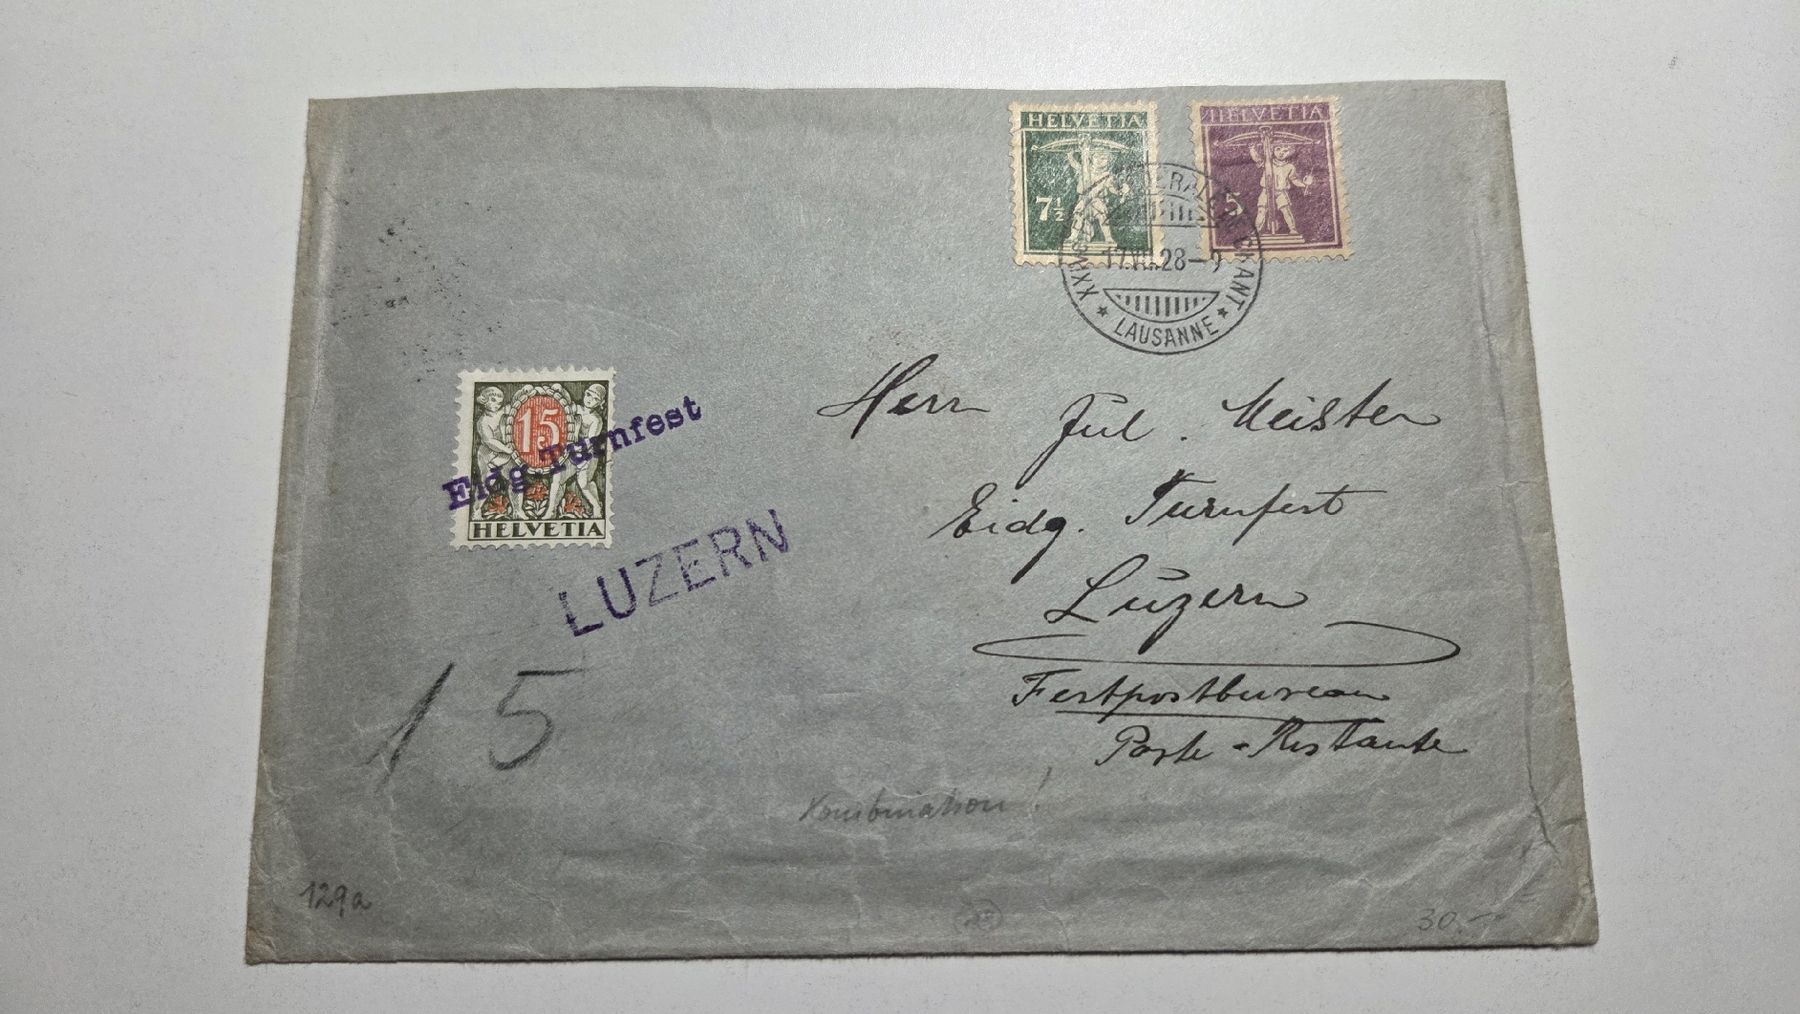 HELVETIA
7½
HELVETIA
5
17.VII.28-9
LAUSANNE
15
HELVETIA
Eidg. Turnfest
LUZERN
Herrn Jul. Meister
Eidg. Turnfest
Luzern
Festpostbureau
Poste-Restante
15
Kombination!
129a
30.-